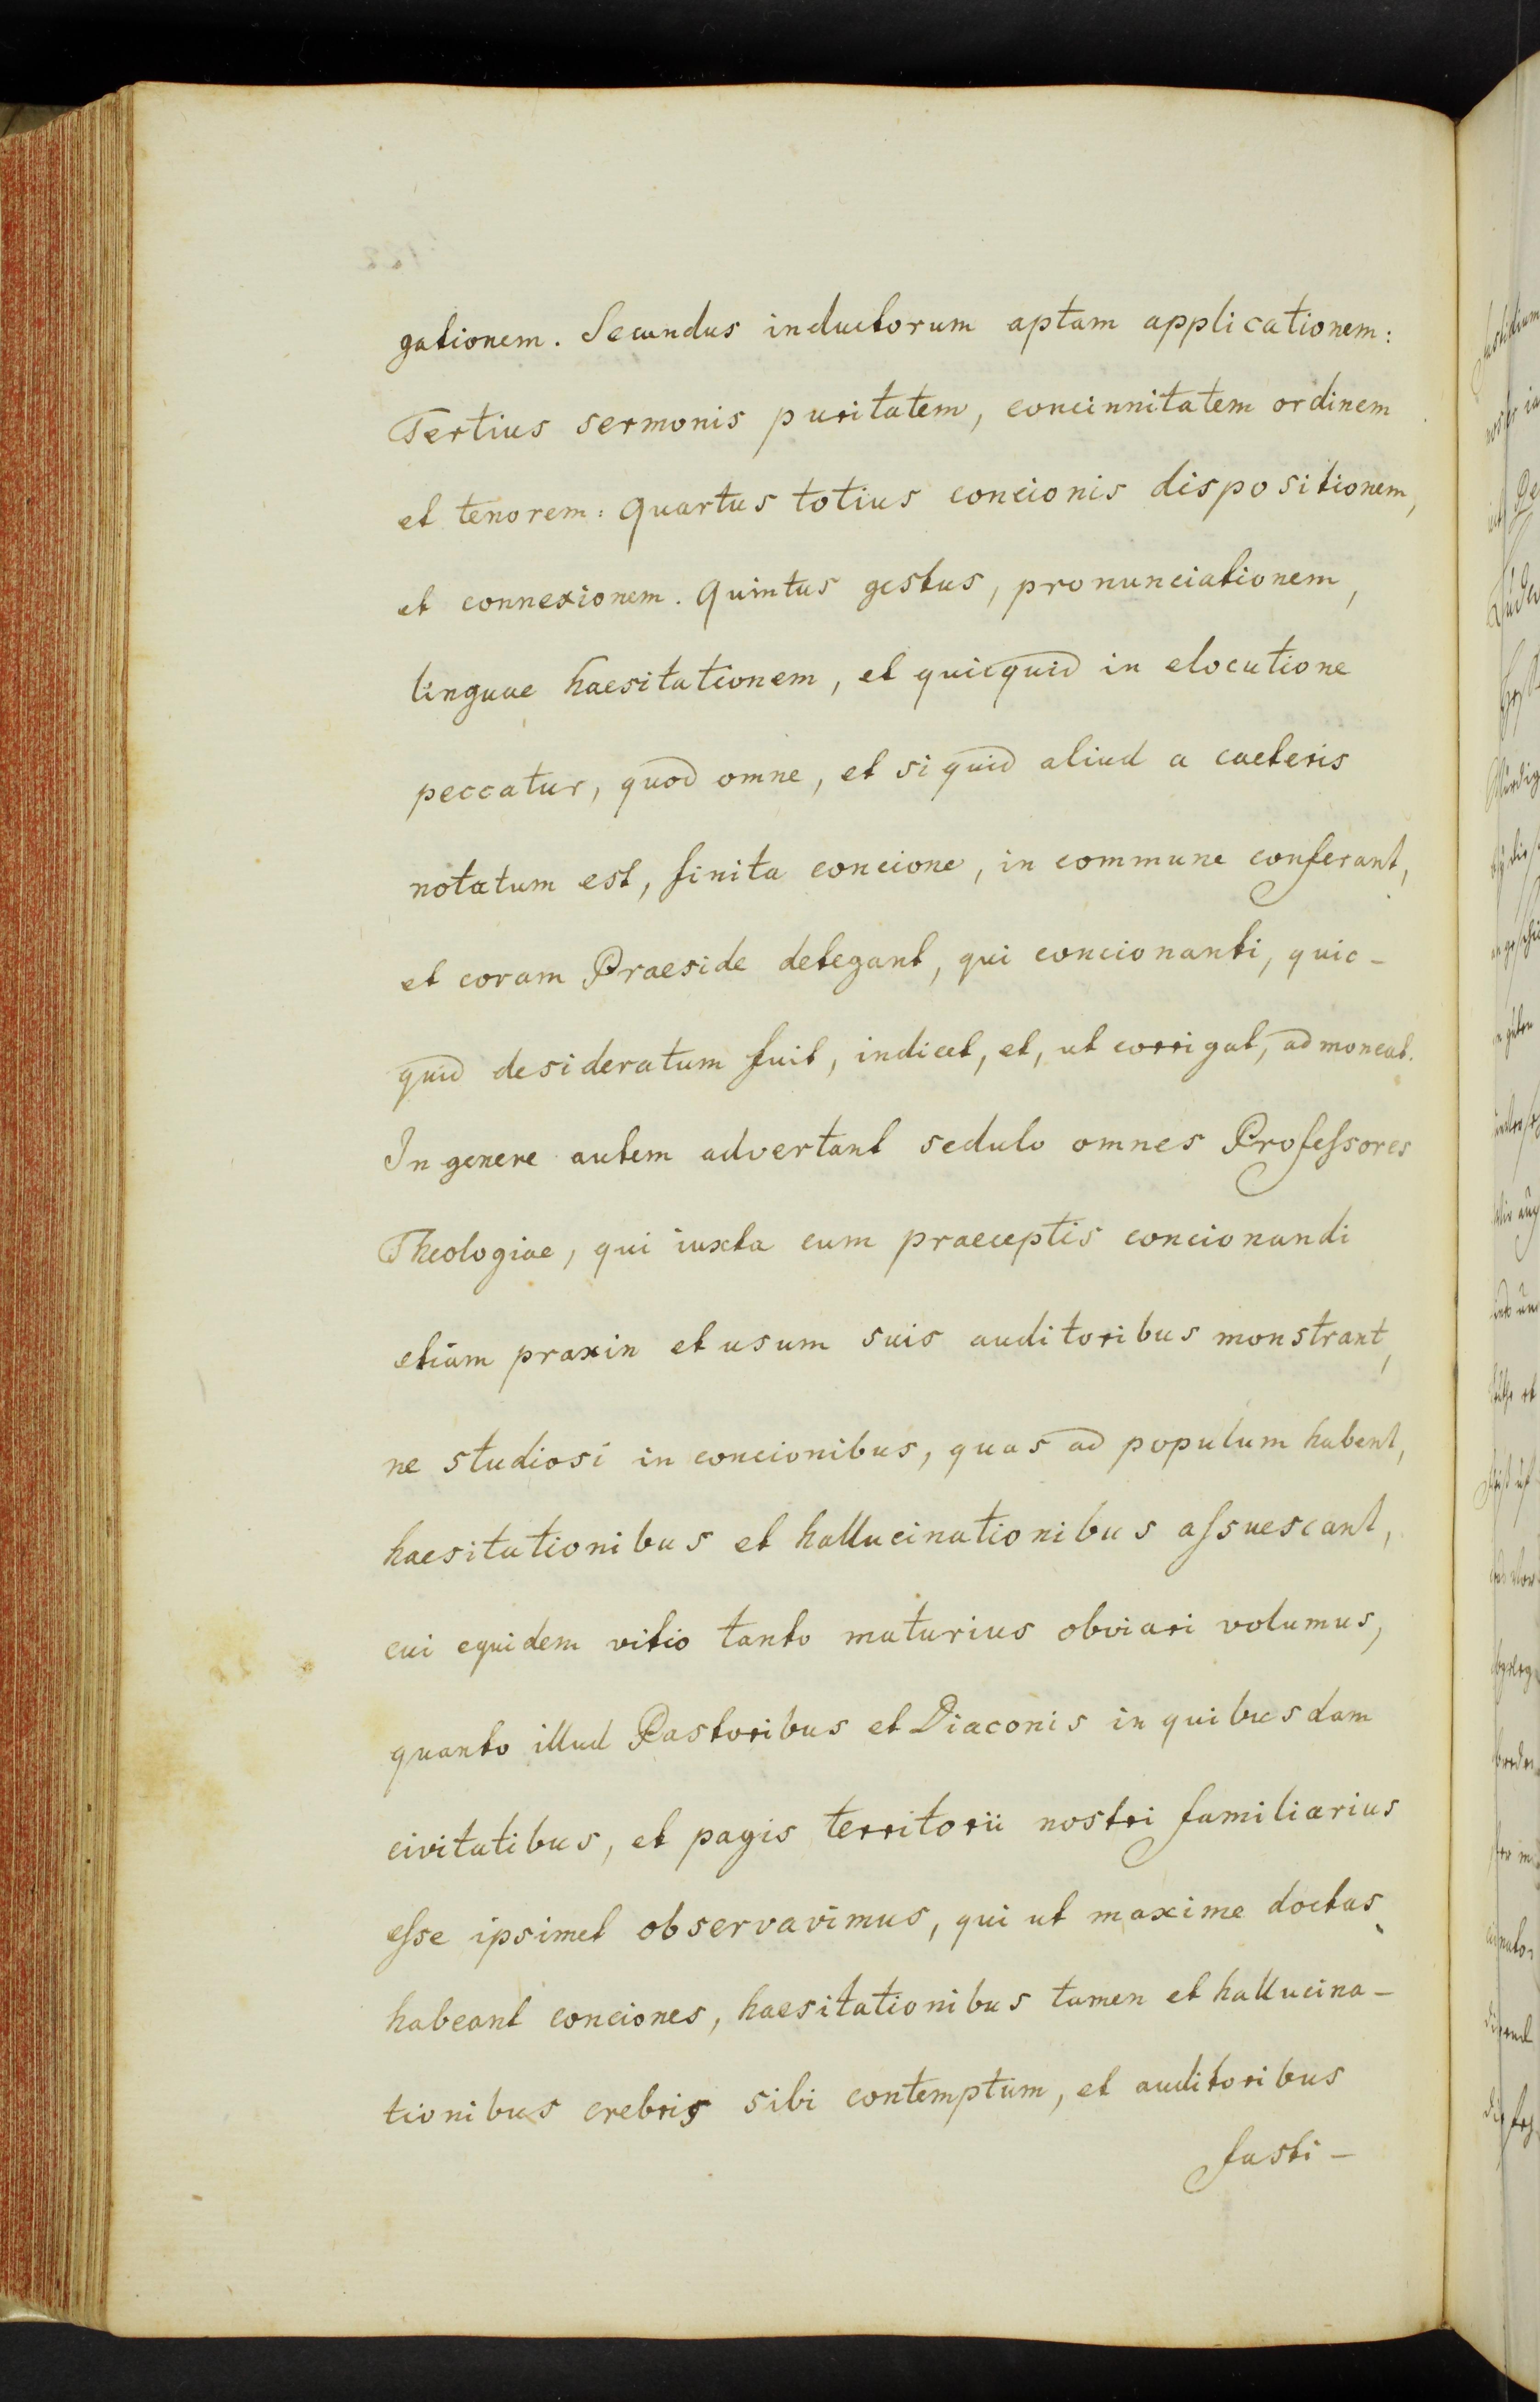 gationem. Secundus inductorum aptam applicationem:
Tertius sermonis puritatem, concinnitatem ordinem
et tenorem: Quartus totius concionis dispositionem,
et connexionem. Quintus gestus, pronunciationem,
linguae haesitationem, et quicquid in elocutione
peccatur, quod omne, et si quid aliud a caeteris
notatum est, finita concione, in commune conferant,
et coram Praeside detegant, qui concionanti, quic-
quid desideratum fuit, indicet, et, ut corrigat, admoneat.
In genere autem advertant sedulo omnes Professores
Theologiae, qui iuxta cum praeceptis concionandi
etiam praxin et usum suis auditoribus monstrant,
ne studiosi in concionibus, quas ad populum habent,
haesitationibus et hallucinationibus assuescant,
cui equidem vitio tanto maturius obviari volumus,
quanto illud Pastoribus et Diaconis in quibusdam
civitatibus, et pagis territorii nostri familiarius
esse ipsimet observavimus, qui ut maxime doctas
habeant conciones, haesitationibus tamen et hallucina-
tionibus crebris sibi contemptum, et auditoribus
fasti-